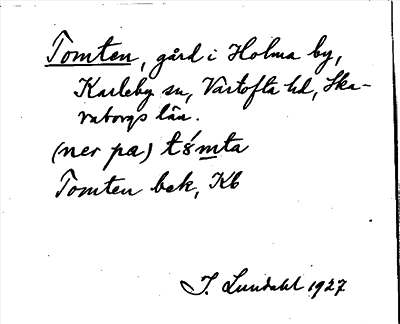 Tomten, gård i Holma by,
Karleby sn, Vartofta hd, Ska-
raborgs län.
(ner pæ) tǿmta
Tomten bek, Kb
I. Lundahl 1927